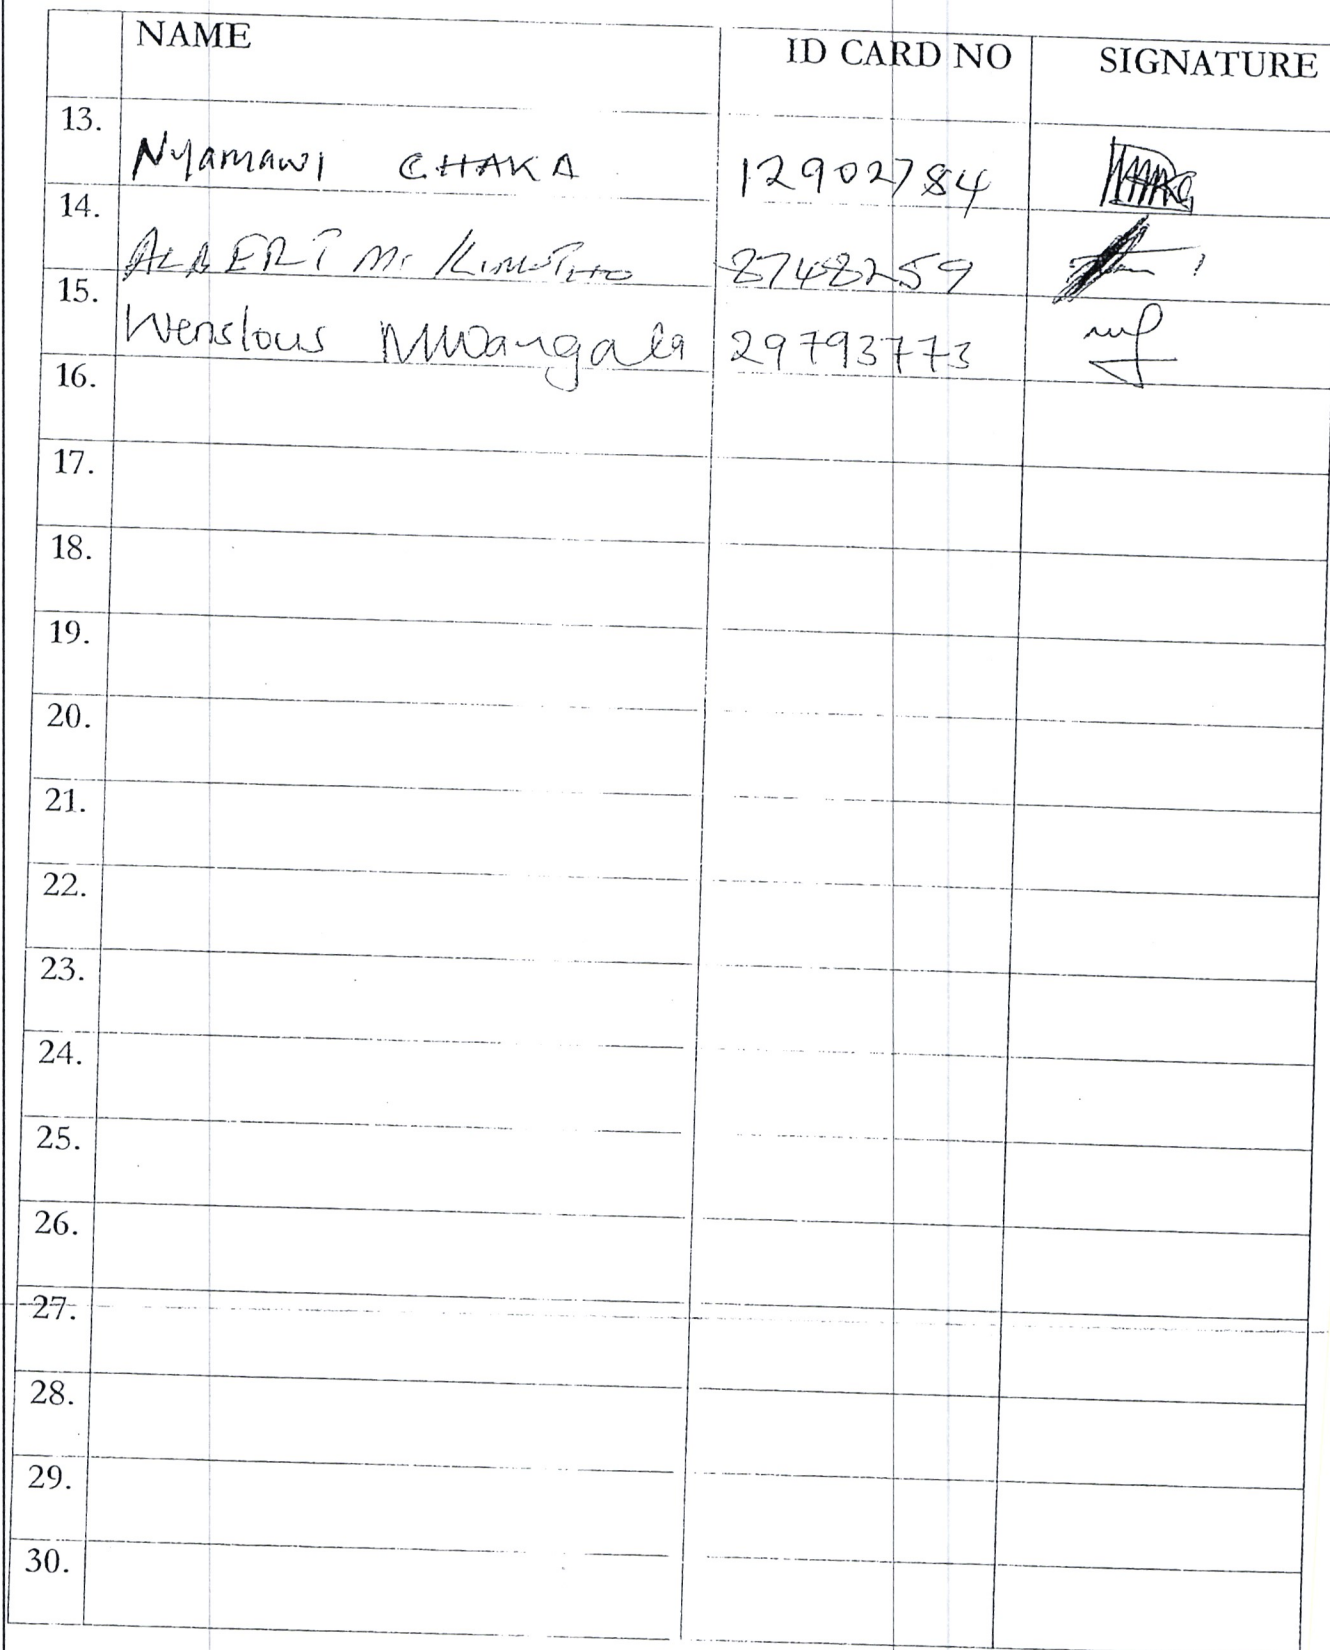 NAME ID CARD NO SIGNATURE
13. Nyamawi CHAKA 12902784
14. ALBERT M. KIMOTHO 8748259
15. Wenslous Mwangala 29793773
16.
17.
18.
19.
20.
21.
22.
23.
24.
25.
26.
27.
28.
29.
30.